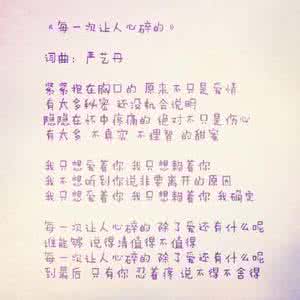 《每一次让人心碎的》
词曲：严艺丹
紧紧抱在胸口的 原来不只是爱情
有太多秘密 还没机会说明
隐隐在怀中疼痛的 绝对不只是伤心
有太多 不真实 不理智 的甜蜜
我只想爱着你 我只想翻着你
我不想听到你说非要离开的原因
我只想爱着你 我只想翻着你 我确定
每一次让人心碎的 除了爱还有什么呢
谁能够 说得清值得不值得
每一次让人心碎的 除了爱还有什么呢
到最后 只有你 忍着疼 说不得不舍得